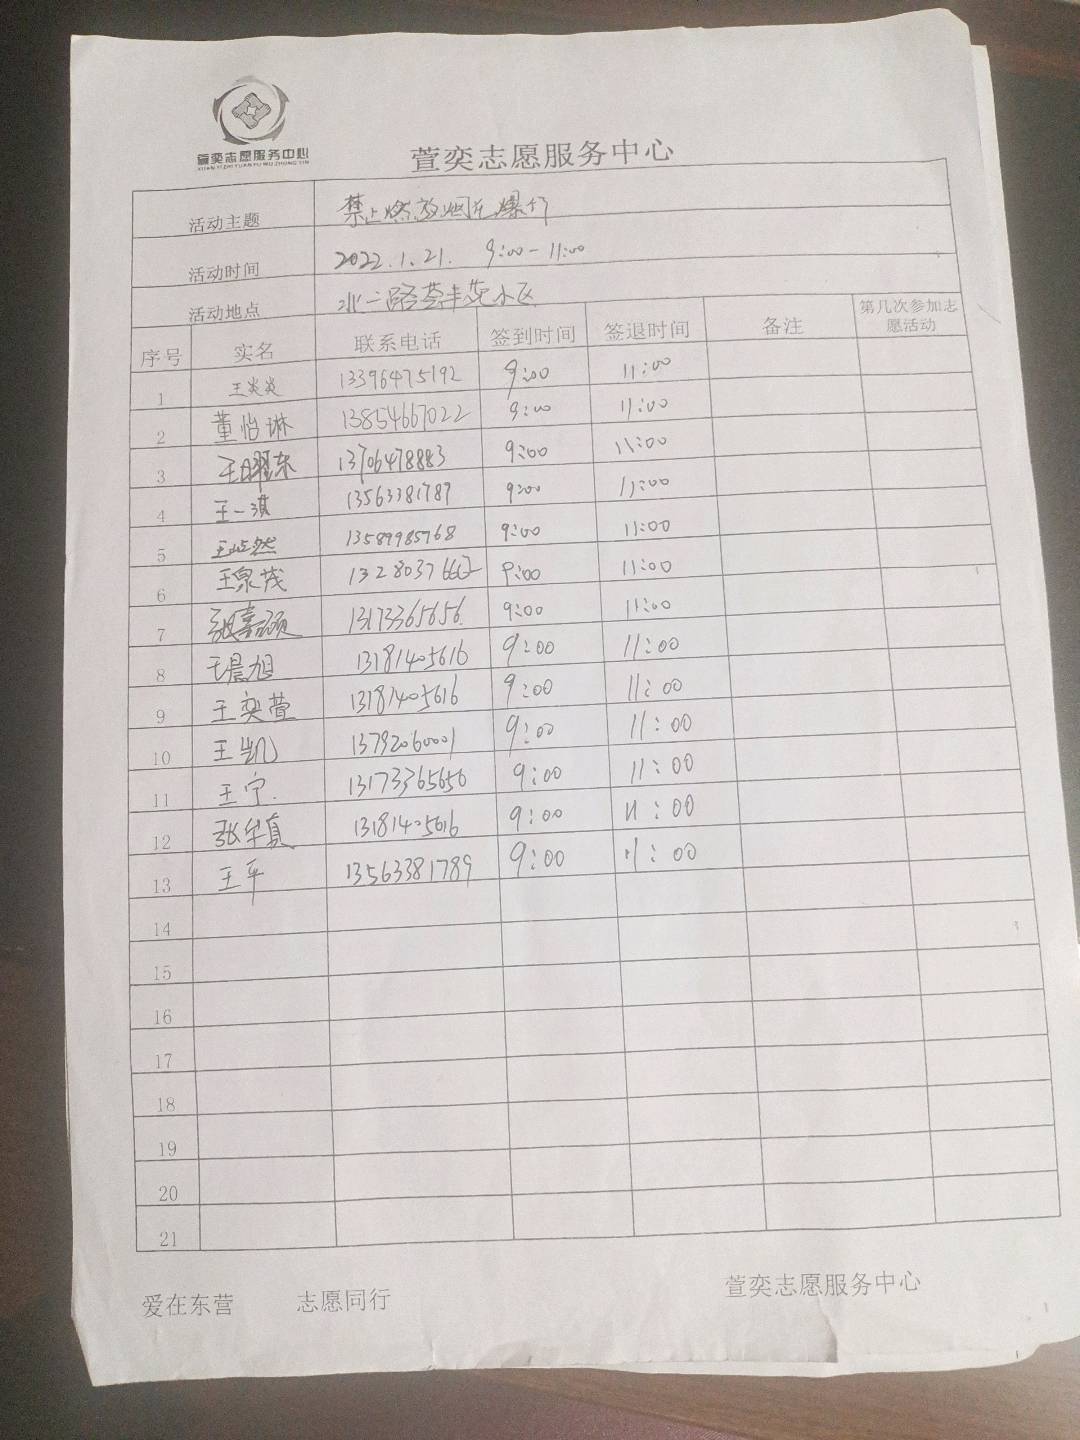 萱奕志愿服务中心
XUAN YI ZHI YUAN FU WU ZHONG XIN
萱奕志愿服务中心
活动主题 禁止燃放烟花爆竹
活动时间 2022.1.21. 9:00-11:00
活动地点 北二路荟丰苑小区
序号 实名 联系电话 签到时间 签退时间 备注 第几次参加志愿活动
1 王炎炎 13396475192 9:00 11:00
2 董怡琳 13854667022 9:00 11:00
3 王曜东 13706478883 9:00 11:00
4 王一淇 13563381789 9:00 11:00
5 王屹然 13589985768 9:00 11:00
6 王泉茂 9:00 11:00
7 张嘉硕 13173365656 9:00 11:00
8 王晨旭 13181405616 9:00 11:00
9 王奕萱 13181405616 9:00 11:00
10 王凯 13792060001 9:00 11:00
11 王宁 13173365656 9:00 11:00
12 张华真 13181405616 9:00 11:00
13 王平 13563381789 9:00 11:00
14
15
16
17
18
19
20
21
爱在东营 志愿同行 萱奕志愿服务中心